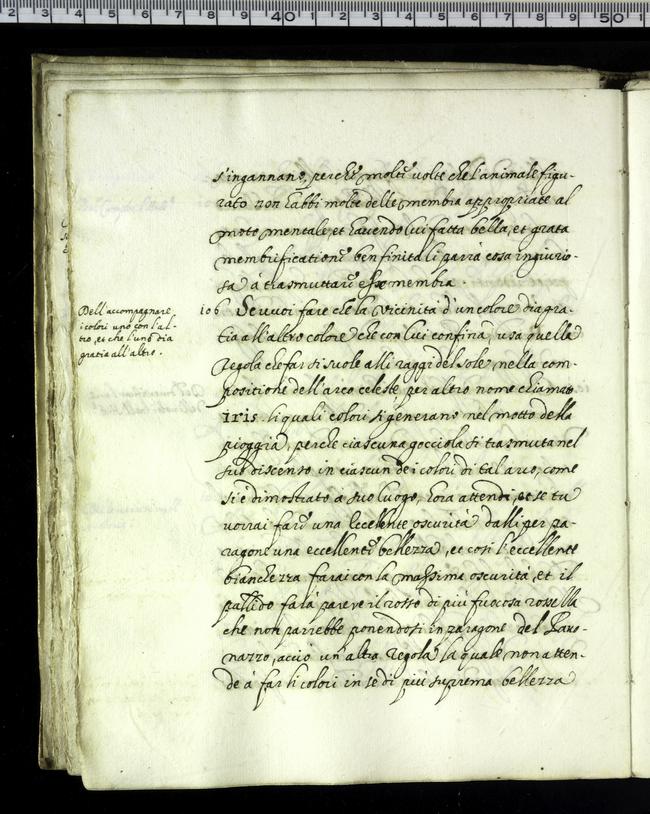 s'ingannano, perche molte volte che l'animale figu-
rato non habbi molte delle membia appropriate al
moto mentale, et havendo lui fatta bella, et grata
membrificatione ben finita li parrà cosa ingiurio-
sa à trasmuttare esse membia.
Dell'accompagnare
i colori uno con l'al-
tro, et che l'uno dia
gratia all'altro.
106 Se vuoi fare che la vicinità d'un colore dia gra-
tia all'altro colore che con lui confina, usa quella
regola che far si suole alli raggi del sole, nella com-
positione dell'arco celeste per altro nome chiamato
iris. li quali colori si generano nel motto della
pioggia, perche ciascuna gocciola si trasmuta nel
suo discenso in ciascun dei colori di tal arco, come
si è dimostrato a suo luogo, hora attendi, et se tu
vorrai fare una eccellente oscurità dalli per pa-
ragone una eccellente bellezza, et così l'eccellente
bianchezza farai con la massima oscurità, et il
pallido farà parere il rosso di più fuocosa rossezza
che non parrebbe ponendosi in paragone del Pavo-
nazzo, acciò un'altra regola la quale non atten-
de à far li colori in se di più suprema bellezza